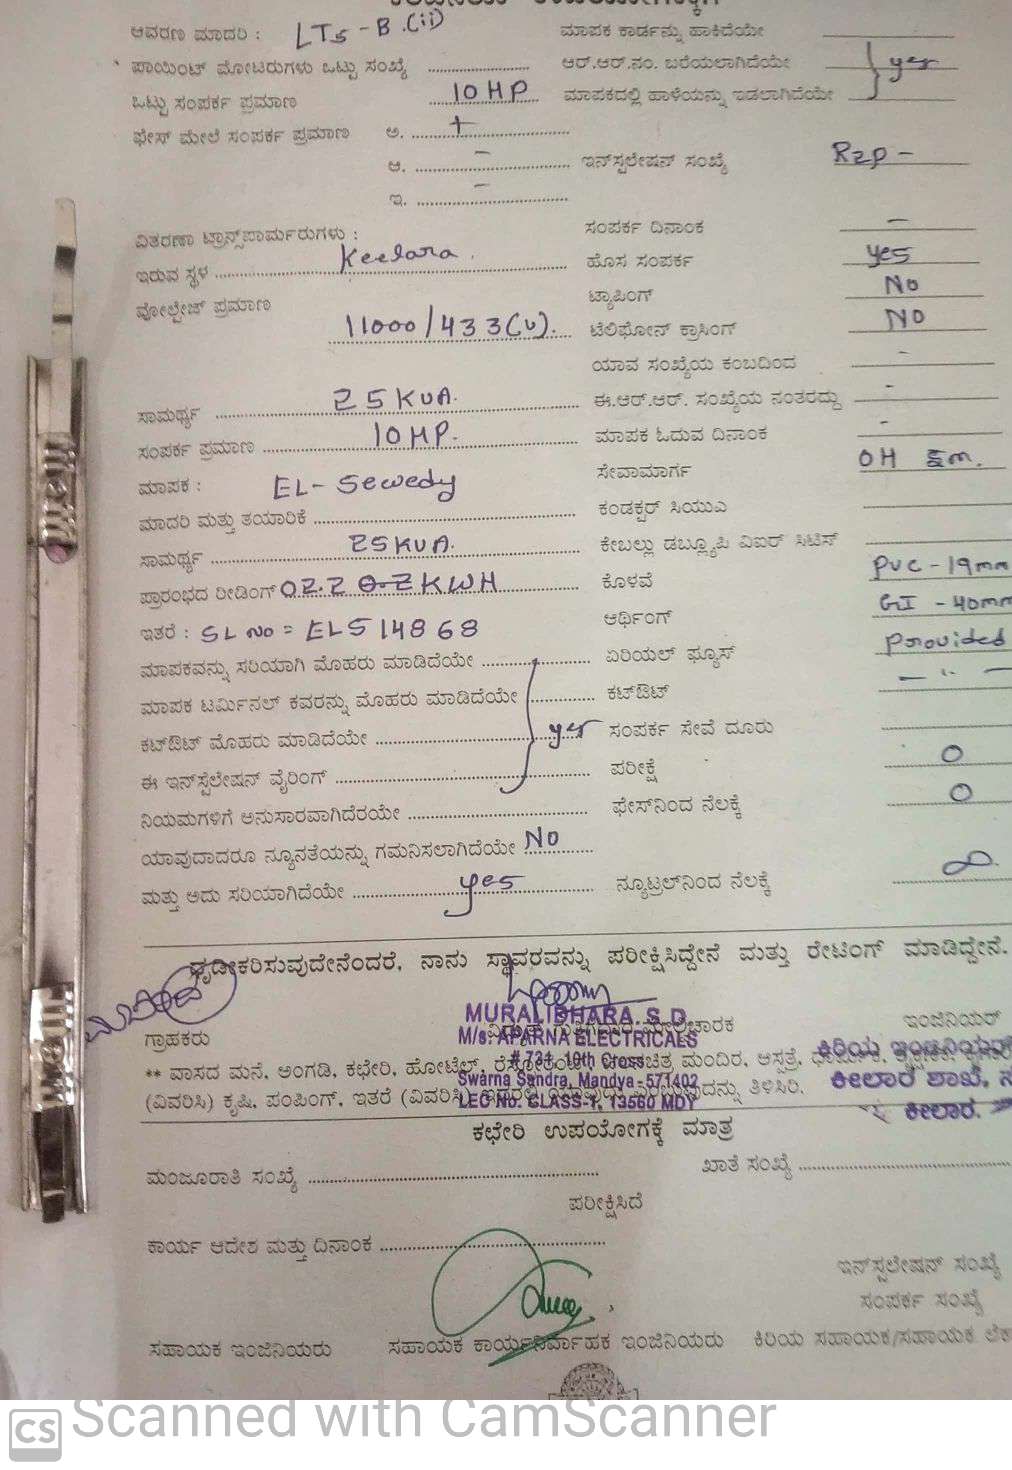 ಆವರಣ ಮಾದರಿ : LT5 - B.(ii) ಮಾಪಕ ಕಾರ್ಡನ್ನು ಹಾಕಿದೆಯೇ
ಪಾಯಿಂಟ್ ಮೋಟರುಗಳು ಒಟ್ಟು ಸಂಖ್ಯೆ ಆರ್.ಆರ್.ನಂ. ಬರೆಯಲಾಗಿದೆಯೇ yes
ಒಟ್ಟು ಸಂಪರ್ಕ ಪ್ರಮಾಣ 10 HP ಮಾಪಕದಲ್ಲಿ ಹಾಳೆಯನ್ನು ಇಡಲಾಗಿದೆಯೇ
ಫೇಸ್ ಮೇಲೆ ಸಂಪರ್ಕ ಪ್ರಮಾಣ ಅ. +
ಆ. - ಇನ್‌ಸ್ಟಲೇಷನ್ ಸಂಖ್ಯೆ
ಇ. -
ವಿತರಣಾ ಟ್ರಾನ್ಸ್‌ಫಾರ್ಮರುಗಳು : ಸಂಪರ್ಕ ದಿನಾಂಕ -
ಇರುವ ಸ್ಥಳ Keelara. ಹೊಸ ಸಂಪರ್ಕ yes
ವೋಲ್ಟೇಜ್ ಪ್ರಮಾಣ ಟ್ಯಾಪಿಂಗ್ No
11000/433(v). ಟೆಲಿಫೋನ್ ಕ್ರಾಸಿಂಗ್ NO
ಯಾವ ಸಂಖ್ಯೆಯ ಕಂಬದಿಂದ -
ಸಾಮರ್ಥ್ಯ 25 KVA. ಈ.ಆರ್.ಆರ್. ಸಂಖ್ಯೆಯ ನಂತರದ್ದು -
ಸಂಪರ್ಕ ಪ್ರಮಾಣ 10 HP. ಮಾಪಕ ಓದುವ ದಿನಾಂಕ -
ಮಾಪಕ : EL- Sewedy ಸೇವಾಮಾರ್ಗ OH
ಮಾದರಿ ಮತ್ತು ತಯಾರಿಕೆ ಕಂಡಕ್ಟರ್ ಸಿಯುಎ
ಸಾಮರ್ಥ್ಯ 25 KVA. ಕೇಬಲ್ಲು ಡಬ್ಲ್ಯೂಪಿ ವಿಐರ್ ಸಿಟಿಸ್
ಪ್ರಾರಂಭದ ರೀಡಿಂಗ್ 02.2 0.2 KWH ಕೊಳವೆ PVC - 19mm
ಇತರೆ : SL No = ELS 14868 ಆರ್ಥಿಂಗ್ GI - 40mm
ಮಾಪಕವನ್ನು ಸರಿಯಾಗಿ ಮೊಹರು ಮಾಡಿದೆಯೇ ಏರಿಯಲ್ ಫ್ಯೂಸ್ Provided
ಮಾಪಕ ಟರ್ಮಿನಲ್ ಕವರನ್ನು ಮೊಹರು ಮಾಡಿದೆಯೇ ಕಟ್‌ಔಟ್ - " -
ಕಟ್‌ಔಟ್ ಮೊಹರು ಮಾಡಿದೆಯೇ yes ಸಂಪರ್ಕ ಸೇವೆ ದೂರು
ಈ ಇನ್‌ಸ್ಟೆಲೇಷನ್ ವೈರಿಂಗ್ ಪರೀಕ್ಷೆ 0
ನಿಯಮಗಳಿಗೆ ಅನುಸಾರವಾಗಿದೆರಯೇ ಫೇಸ್‌ನಿಂದ ನೆಲಕ್ಕೆ 0
ಯಾವುದಾದರೂ ನ್ಯೂನತೆಯನ್ನು ಗಮನಿಸಲಾಗಿದೆಯೇ No
ಮತ್ತು ಅದು ಸರಿಯಾಗಿದೆಯೇ yes ನ್ಯೂಟ್ರಲ್‌ನಿಂದ ನೆಲಕ್ಕೆ ∞
ಧೃಡೀಕರಿಸುವುದೇನೆಂದರೆ, ನಾನು ಸ್ಥಾವರವನ್ನು ಪರೀಕ್ಷಿಸಿದ್ದೇನೆ ಮತ್ತು ರೇಟಿಂಗ್ ಮಾಡಿದ್ದೇನೆ.
MURALIDHARA. S.D.
ಗ್ರಾಹಕರು ಇಂಜಿನಿಯರ್
M/s. APARNA ELECTRICALS
ಕಿರಿಯ ಇಂಜಿನಿಯರ್
** ವಾಸದ ಮನೆ, ಅಂಗಡಿ, ಕಛೇರಿ, ಹೋಟೆಲ್, ಮಂದಿರ, ಆಸ್ಪತ್ರೆ,
# 731, 10th Cross
Swarna Sandra, Mandya - 571402
ಕೀಲಾರ ಶಾಖೆ,
(ವಿವರಿಸಿ) ಕೃಷಿ, ಪಂಪಿಂಗ್, ಇತರೆ ತಿಳಿಸಿರಿ.
LEC No. CLASS-1, 13560 MDY
ಕೀಲಾರ.
ಕಛೇರಿ ಉಪಯೋಗಕ್ಕೆ ಮಾತ್ರ
ಮಂಜೂರಾತಿ ಸಂಖ್ಯೆ ಖಾತೆ ಸಂಖ್ಯೆ
ಪರೀಕ್ಷಿಸಿದೆ
ಕಾರ್ಯ ಆದೇಶ ಮತ್ತು ದಿನಾಂಕ
ಇನ್‌ಸ್ಟಲೇಷನ್ ಸಂಖ್ಯೆ
ಸಂಪರ್ಕ ಸಂಖ್ಯೆ
ಸಹಾಯಕ ಇಂಜಿನಿಯರು ಸಹಾಯಕ ಕಾರ್ಯನಿರ್ವಾಹಕ ಇಂಜಿನಿಯರು ಕಿರಿಯ ಸಹಾಯಕ/ಸಹಾಯಕ
CS Scanned with CamScanner